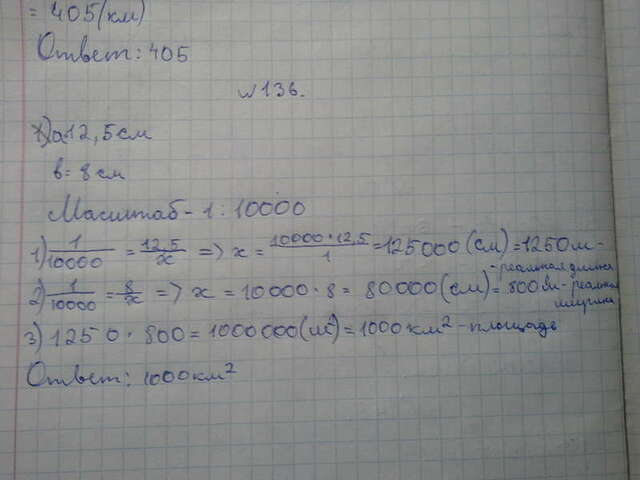 = 405 (км)
Ответ: 405
№ 136.
а 12,5 см
в = 8 см
Масштаб - 1 : 10000
1) 1/10000 = 12,5/x => x = 10000·12,5/1 = 125000 (см) = 1250 м -
- реальная длина
2) 1/10000 = 8/x => x = 10000 · 8 = 80000 (см) = 800 м - реальная
ширина
3) 1250 · 800 = 1000000 (м²) = 1000 км² - площадь
Ответ: 1000 км²